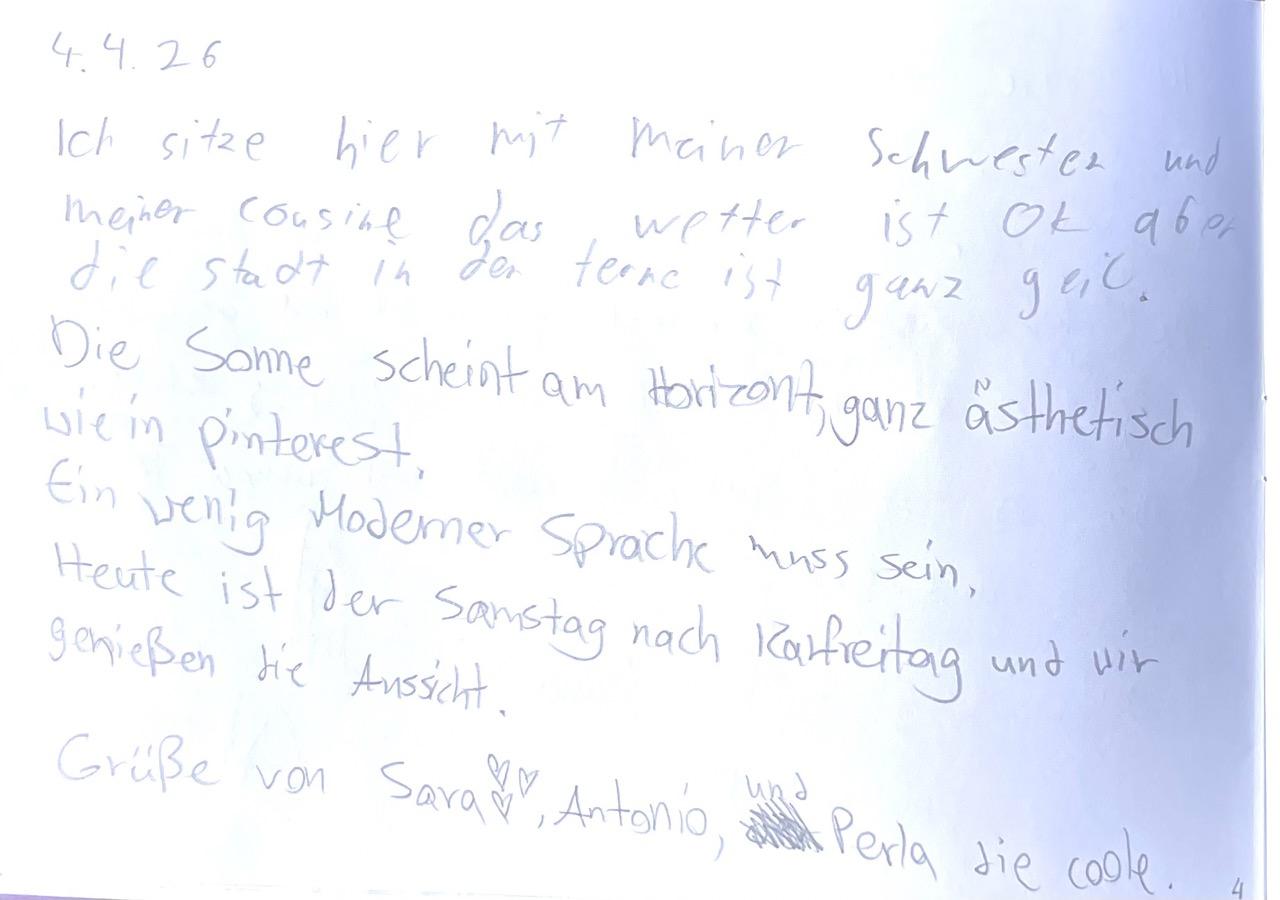 4.4.26
Ich sitze hier mit meiner Schwester und
meiner cousine das wetter ist Ok aber
die stadt in der ferne ist ganz geil.
Die Sonne scheint am Horizont, ganz ästhetisch
wie in pinterest.
Ein wenig Moderner Sprache muss sein.
Heute ist der Samstag nach Karfreitag und wir
genießen die Aussicht.
Grüße von Sara♡♡♡, Antonio, und Perla die coole.
4